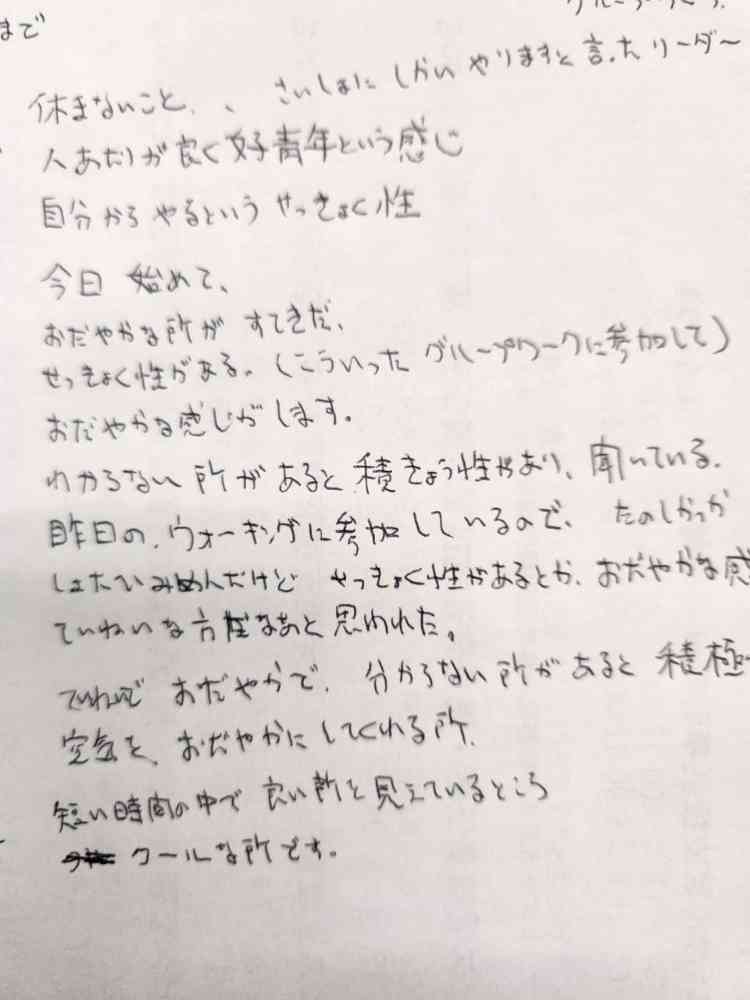 まで
休まないこと、、さいしょに しかい やりますと 言ったリーダー
人あたりが良く好青年という感じ
自分からやるという せっきょく性
今日 始めて、
おだやかな所が すてきだ、
せっきょく性がある。(こういった グループワークに参加して)
おだやかな感じがします。
わからない所があると 積きょう性があり、聞いている。
昨日の、ウォーキングに参加しているので、たのしかっか
しょたいめんだけど せっきょく性があるとか、おだやかな感
ていねいな方だなあと 思われた。
ていねいで おだやかで、分からない所があると 積極
空気を、おだやかにしてくれる所、
短い時間の中で 良い所を見えているところ
クールな所です。